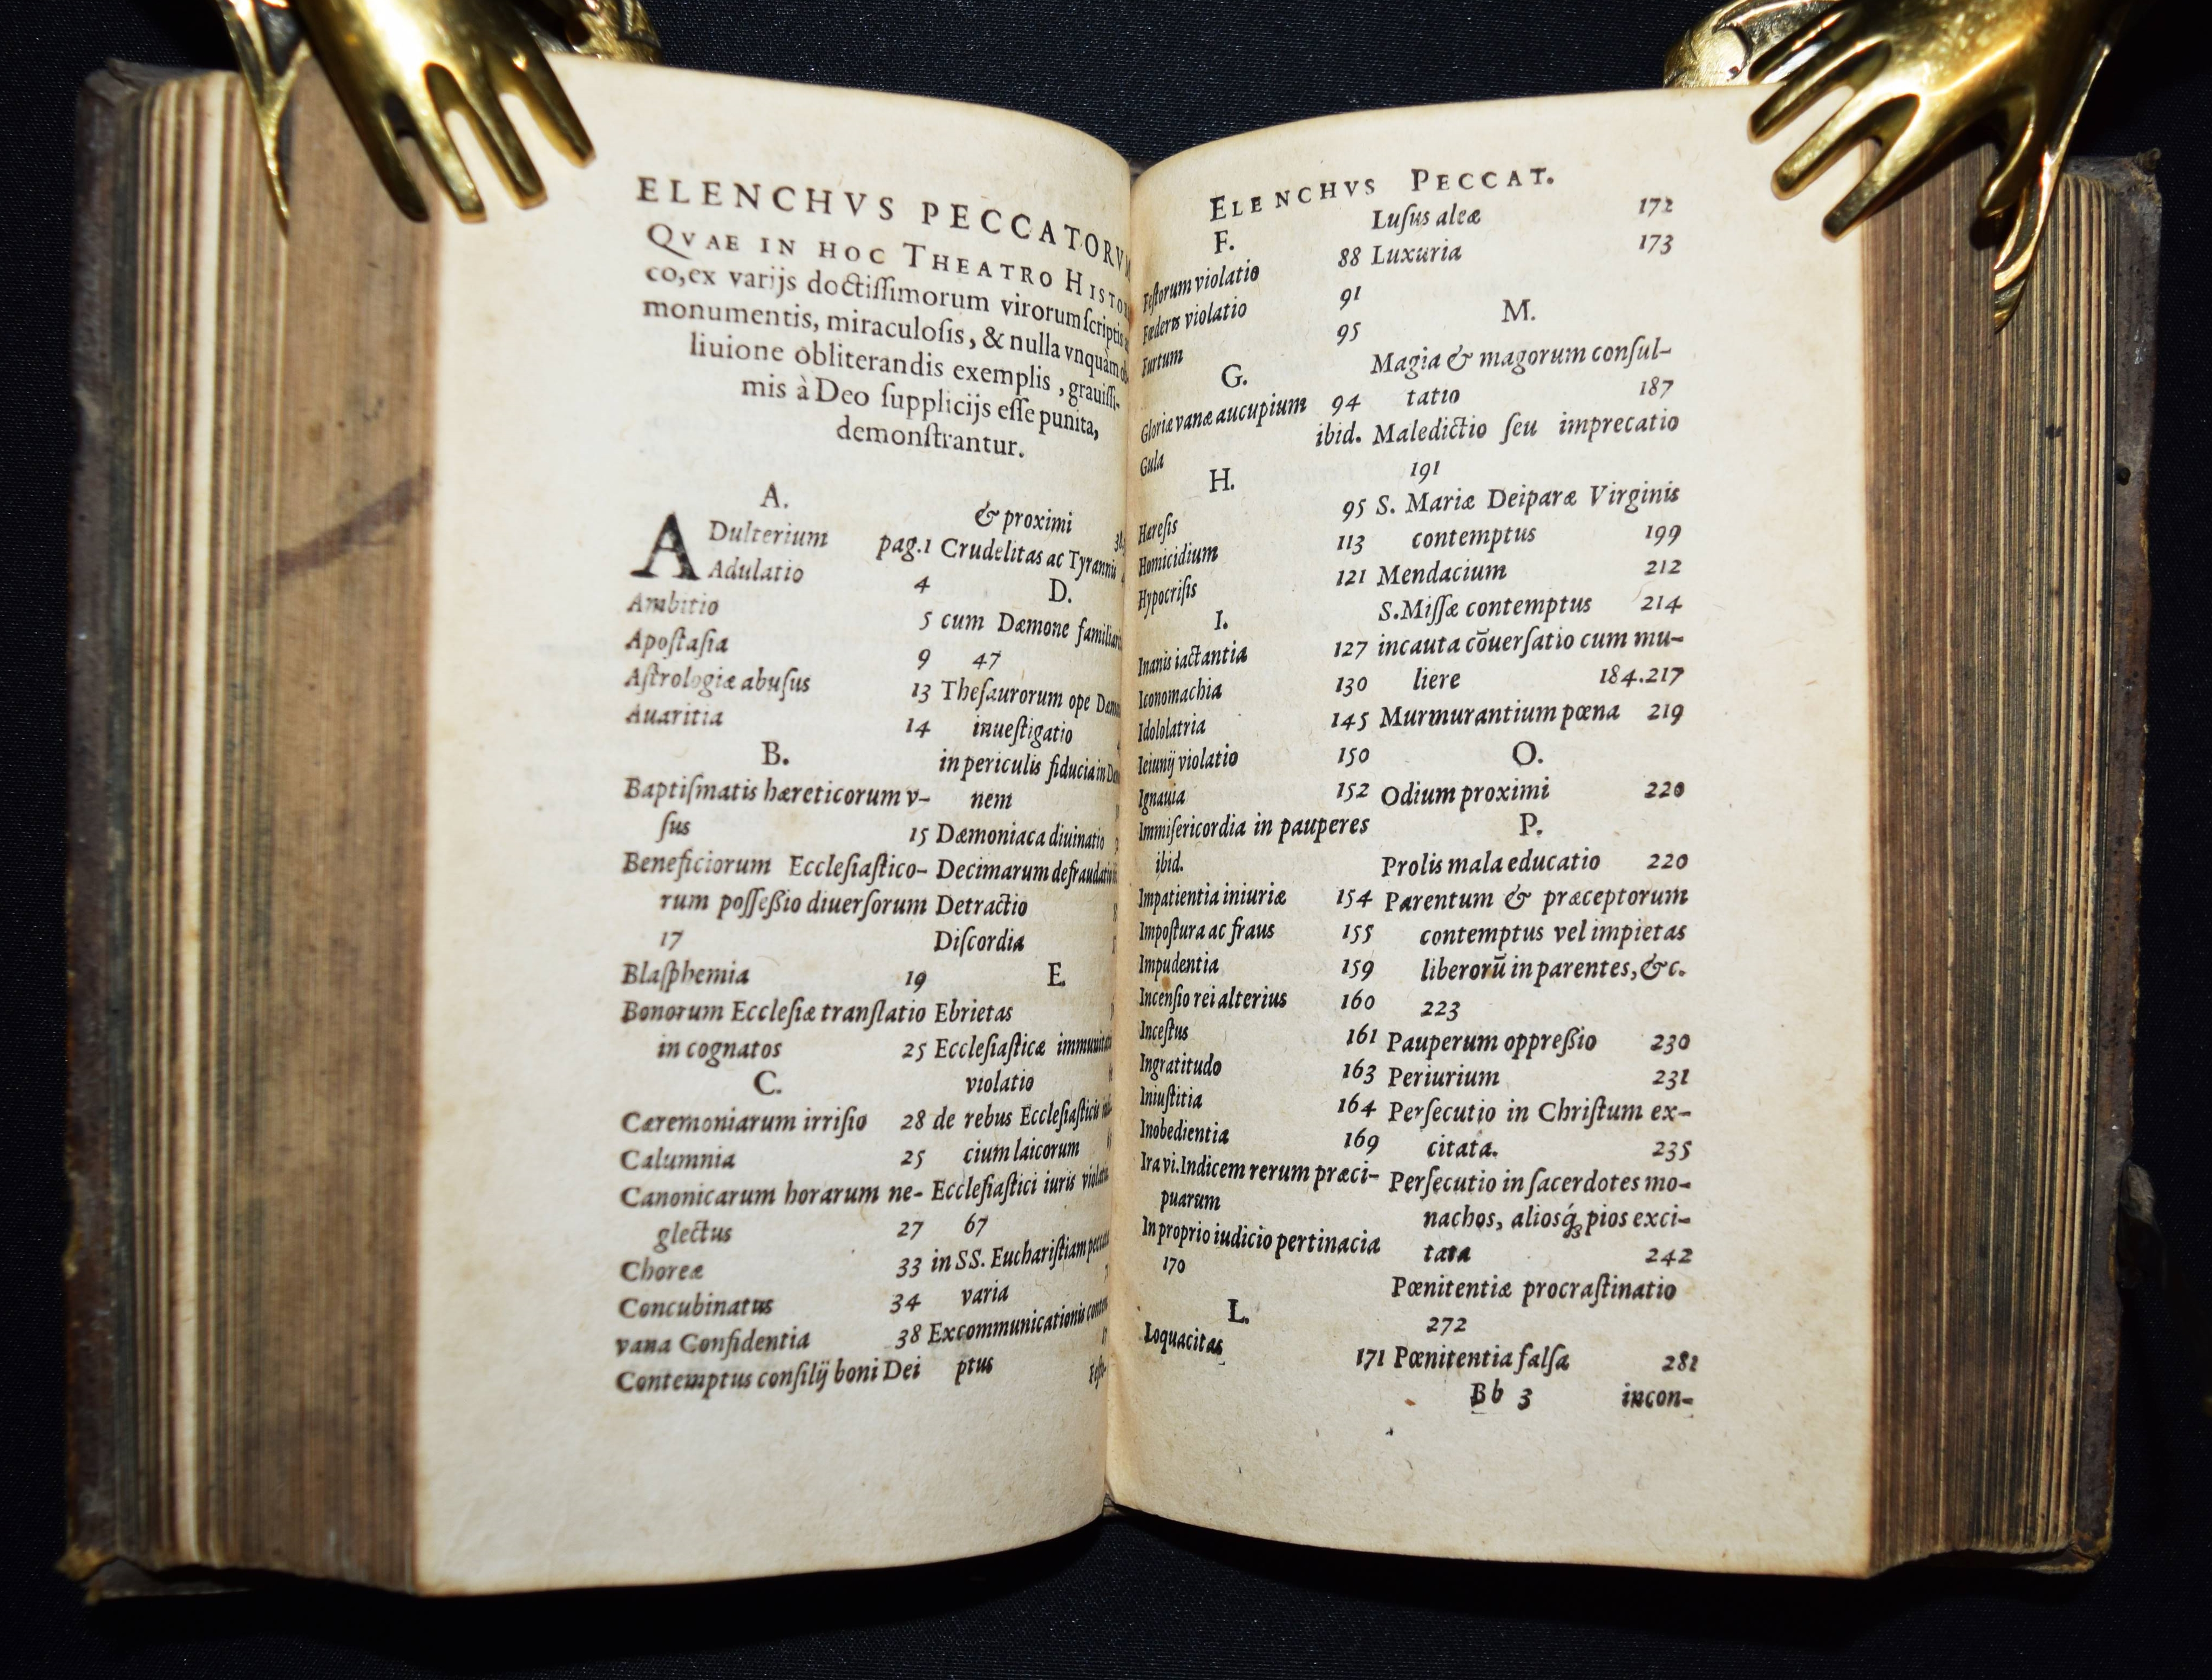 ELENCHVS PECCATORVM
QVAE IN HOC THEATRO HISTO
co, ex varijs doctiſſimorum virorum ſcriptis
monumentis, miraculoſis, & nulla vnquàm ob
liuione obliterandis exemplis, grauiſſi-
mis à Deo ſupplicijs eſſe punita,
demonſtrantur.
A.
ADulterium pag.1
Adulatio 4
Ambitio 5
Apoſtaſia 9
Aſtrologiæ abuſus 13
Auaritia 14
B.
Baptiſmatis hæreticorum v-
ſus 15
Beneficiorum Eccleſiaſtico-
rum poſſeßio diuerſorum
17
Blaſphemia 19
Bonorum Eccleſiæ tranſlatio
in cognatos 25
C.
Cæremoniarum irriſio 28
Calumnia 25
Canonicarum horarum ne-
glectus 27
Choreæ 33
Concubinatus 34
vana Confidentia 38
Contemptus conſilij boni Dei
& proximi
Crudelitas ac Tyrannis
D.
cum Dæmone familiari
47
Theſaurorum ope Dæm
inueſtigatio
in periculis fiducia in Dæ
nem
Dæmoniaca diuinatio
Decimarum defraudatio
Detractio
Diſcordia
E
Ebrietas
Eccleſiaſticæ immunitat
violatio
de rebus Eccleſiaſticis
cium laicorum
Eccleſiaſtici iuris violat
67
in SS. Euchariſtiam peccat
varia
Excommunicationis contem
ptus
Feſto-
ELENCHVS PECCAT.
F.
Feſtorum violatio 88
Fœderis violatio 91
Furtum 95
G.
Gloriæ vanæ aucupium 94
Gula ibid.
H.
Hæreſis 95
Homicidium 113
Hypocriſis 121
I.
Inanis iactantia 127
Iconomachia 130
Idololatria 145
Ieiunij violatio 150
Ignauia 152
Immiſericordia in pauperes
ibid.
Impatientia iniuriæ 154
Impoſtura ac fraus 155
Impudentia 159
Incenſio rei alterius 160
Inceſtus 161
Ingratitudo 163
Iniuſtitia 164
Inobedientia 169
Ira vi. Indicem rerum præci-
puarum
In proprio iudicio pertinacia
170
L.
Loquacitas 171
Luſus aleæ 172
Luxuria 173
M.
Magia & magorum conſul-
tatio 187
Maledictio ſeu imprecatio
191
S. Mariæ Deiparæ Virginis
contemptus 199
Mendacium 212
S. Miſſæ contemptus 214
incauta cōuerſatio cum mu-
liere 184.217
Murmurantium pœna 219
O.
Odium proximi 220
P.
Prolis mala educatio 220
Parentum & præceptorum
contemptus vel impietas
liberorū in parentes, &c.
223
Pauperum oppreßio 230
Periurium 231
Perſecutio in Chriſtum ex-
citata. 235
Perſecutio in ſacerdotes mo-
nachos, alioſq́ꝫ pios exci-
tata 242
Pœnitentiæ procraſtinatio
272
Pœnitentia falſa 281
Bb 3 incon-